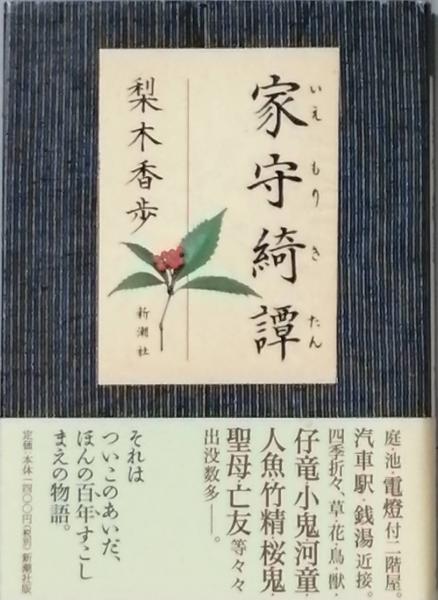 家守綺譚
いえもりきたん
梨木香歩
新潮社
庭・池・電燈付二階屋。
汽車駅・銭湯近接。
四季折々、草・花・鳥・獣・
仔竜・小鬼・河童・
人魚・竹精・桜鬼・
聖母・亡友等々々
出没数多――。
それは
ついこのあいだ、
ほんの百年すこし
まえの物語。
定価:本体一四〇〇円(税別) 新潮社版